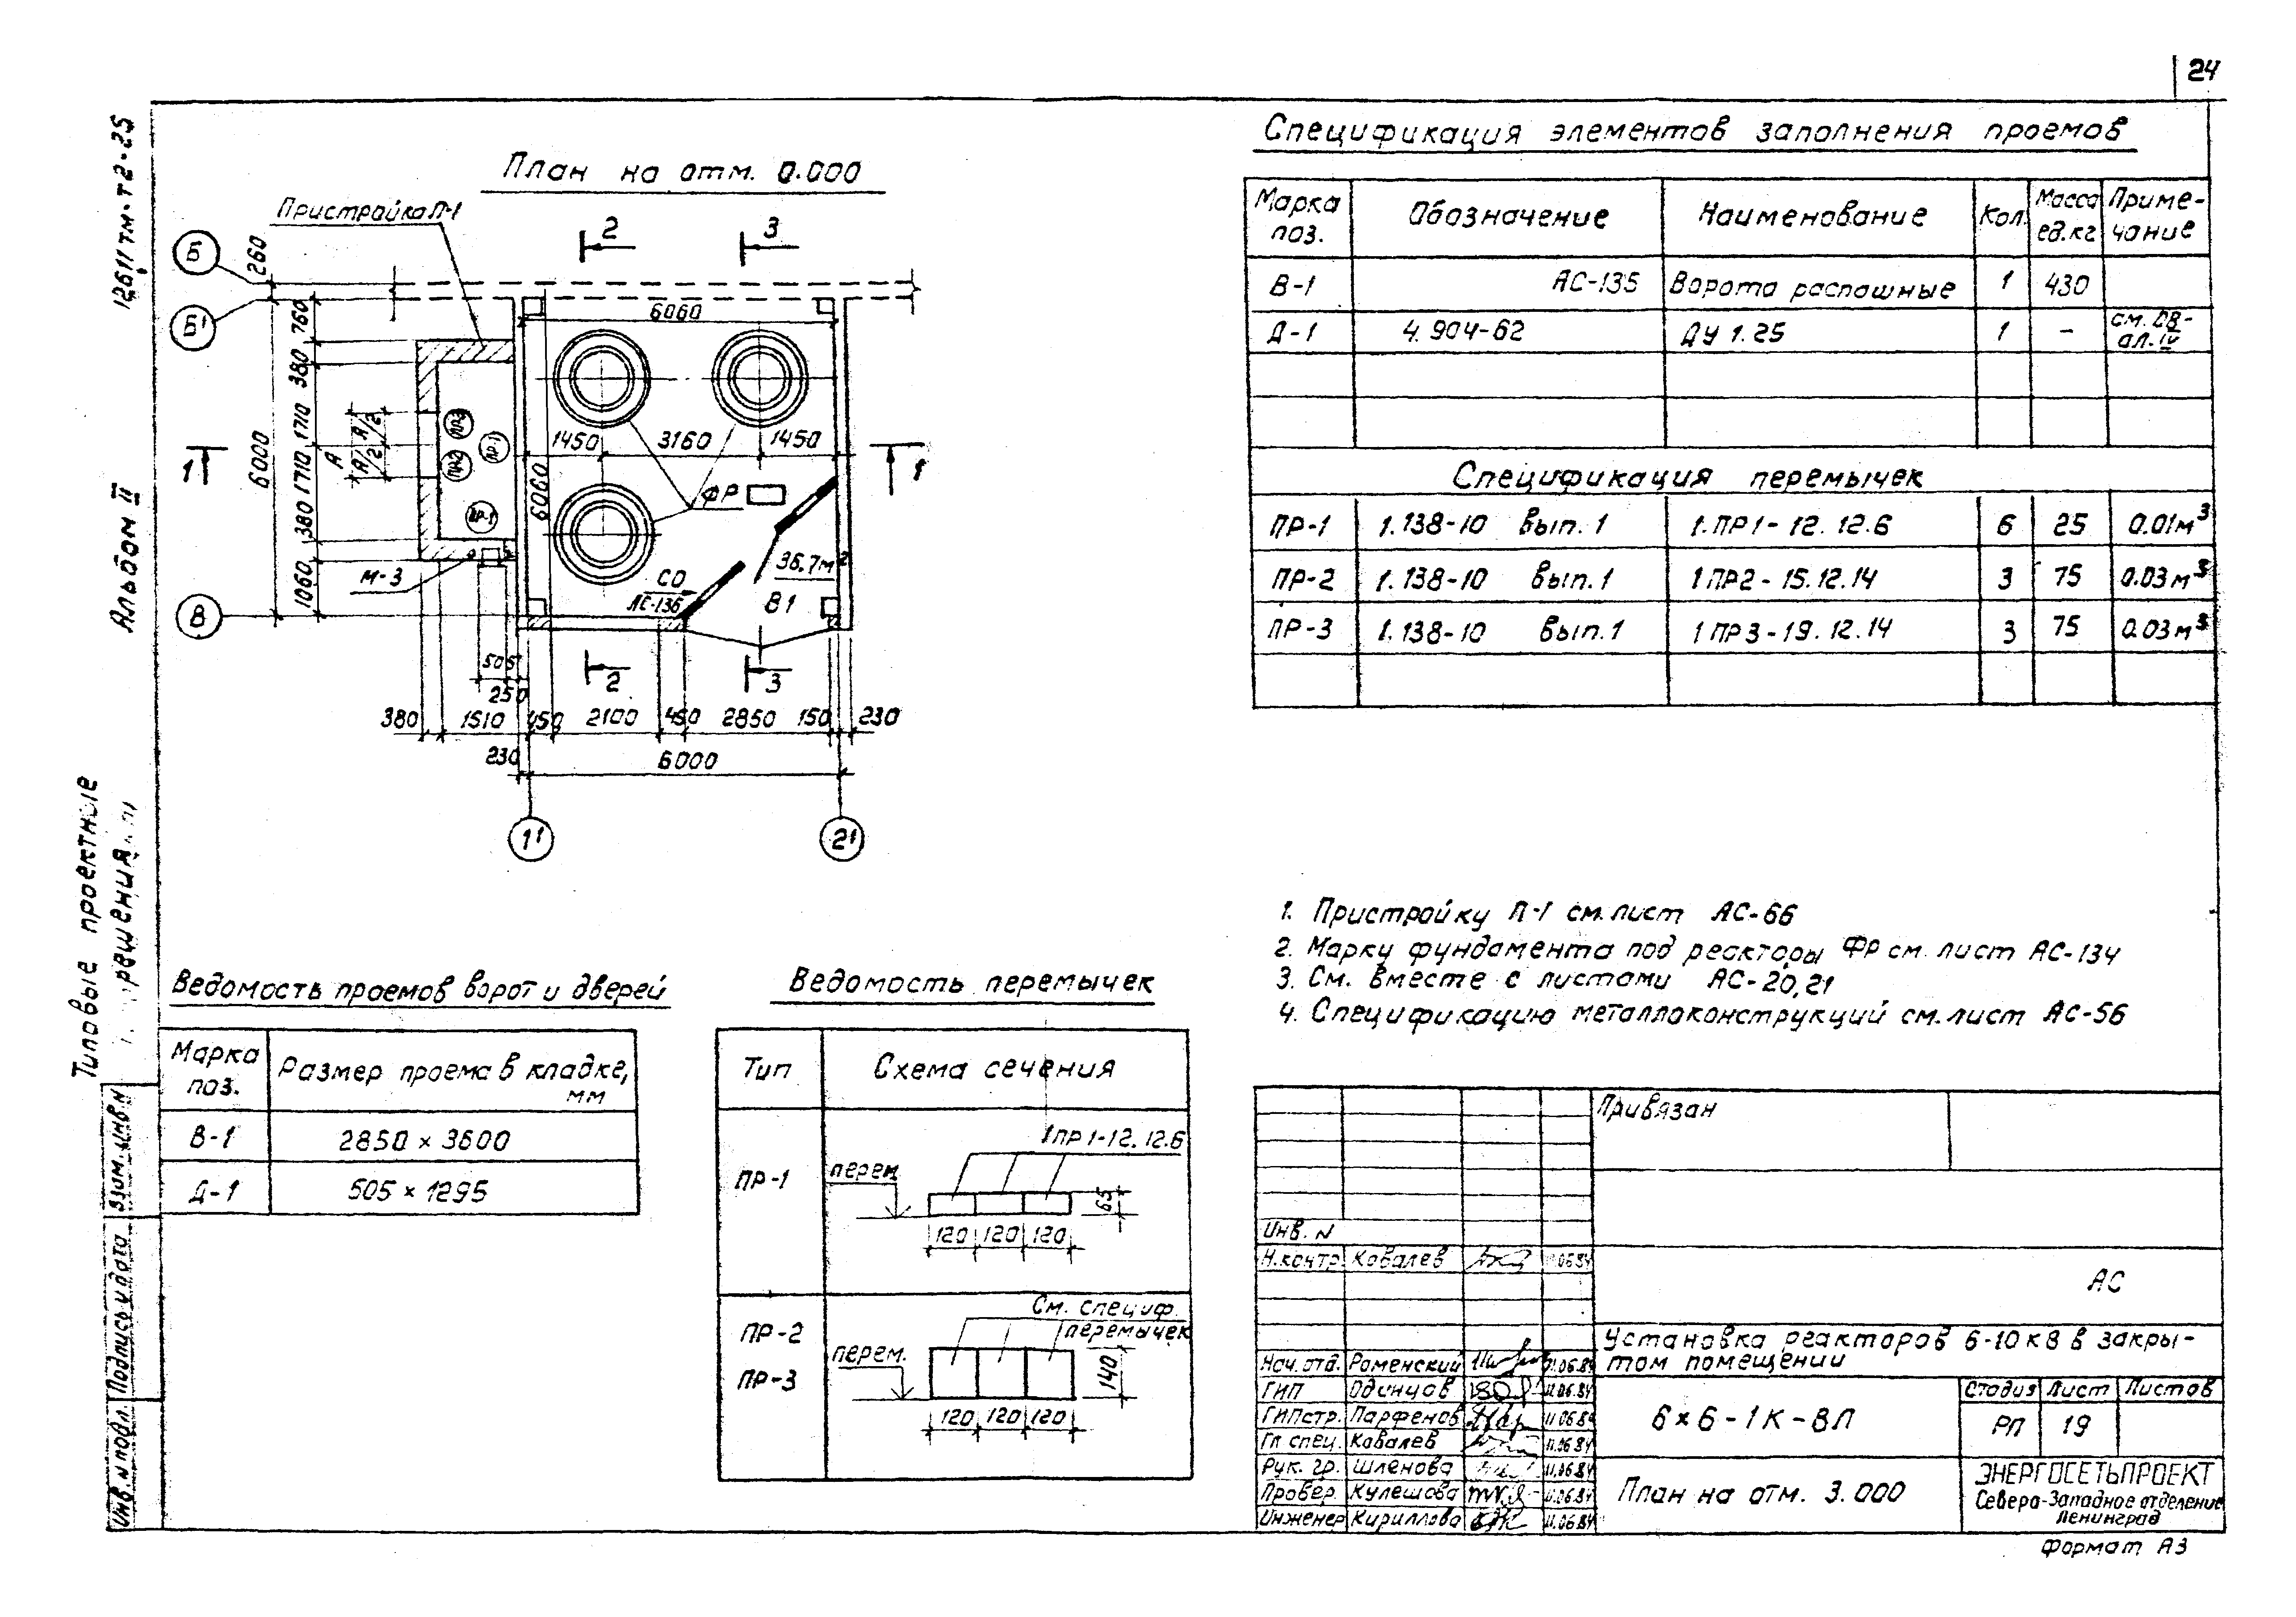 24
12611тм-т2-25
Альбом II
Типовые проектные
решения
План на отм. 0.000
Пристройка П-1
2
3
Б
Б'
В
260
760
380
1710
1710
380
1060
6000
А/2
А/2
А
6060
6060
ПР3
ПР-1
ПР2
ПР-1
1450
3160
1450
1
1
ФР
М-3
СО
АС-136
36.7м²
В1
505
250
2
3
380
1510
450
2100
450
2850
150
230
230
6000
1'
2'
Спецификация элементов заполнения проемов
Марка поз.
Обозначение
Наименование
Кол.
Масса ед.кг
Приме-чание
В-1
АС-135
Ворота распашные
1
430
Д-1
4.904-62
ДУ 1.25
1
-
см. ОВ-
ал.IV
Спецификация перемычек
ПР-1
1.138-10 вып.1
1.ПР1-12.12.6
6
25
0.01м³
ПР-2
1.138-10 вып.1
1ПР2-15.12.14
3
75
0.03м³
ПР-3
1.138-10 вып.1
1ПР3-19.12.14
3
75
0.03м³
1. Пристройку П-1 см.лист АС-66
2. Марку фундамента под реакторы ФР см. лист АС-134
3. См. вместе с листами АС-20,21
4. Спецификацию металлоконструкций см.лист АС-56
Ведомость проемов ворот и дверей
Марка поз.
Размер проема в кладке, мм
В-1
2850 × 3600
Д-1
505 × 1295
Ведомость перемычек
Тип
Схема сечения
ПР-1
1ПР1-12.12.6
перем.
65
120 120 120
ПР-2
ПР-3
См. специф.
перемычек
перем.
140
120 120 120
Взам. инв.N
Подпись и дата
Инв. N подл.
Привязан
Инв. N
Н.контр. Ковалев 11.06.84
АС
Установка реакторов 6-10 кВ в закры-
том помещении
Нач. отд. Раменский 11.06.84
ГИП Одинцов 11.06.84
ГИПстр. Парфенов 11.06.84
Гл спец. Ковалев 11.06.84
Рук. гр. Шленова 11.06.84
Провер. Кулешова 11.06.84
Инженер Кириллова 11.06.84
6×6-1К-ВЛ
Стадия Лист Листов
РП 19
План на отм. 3.000
ЭНЕРГОСЕТЬПРОЕКТ
Северо-Западное отделение
Ленинград
Формат А3